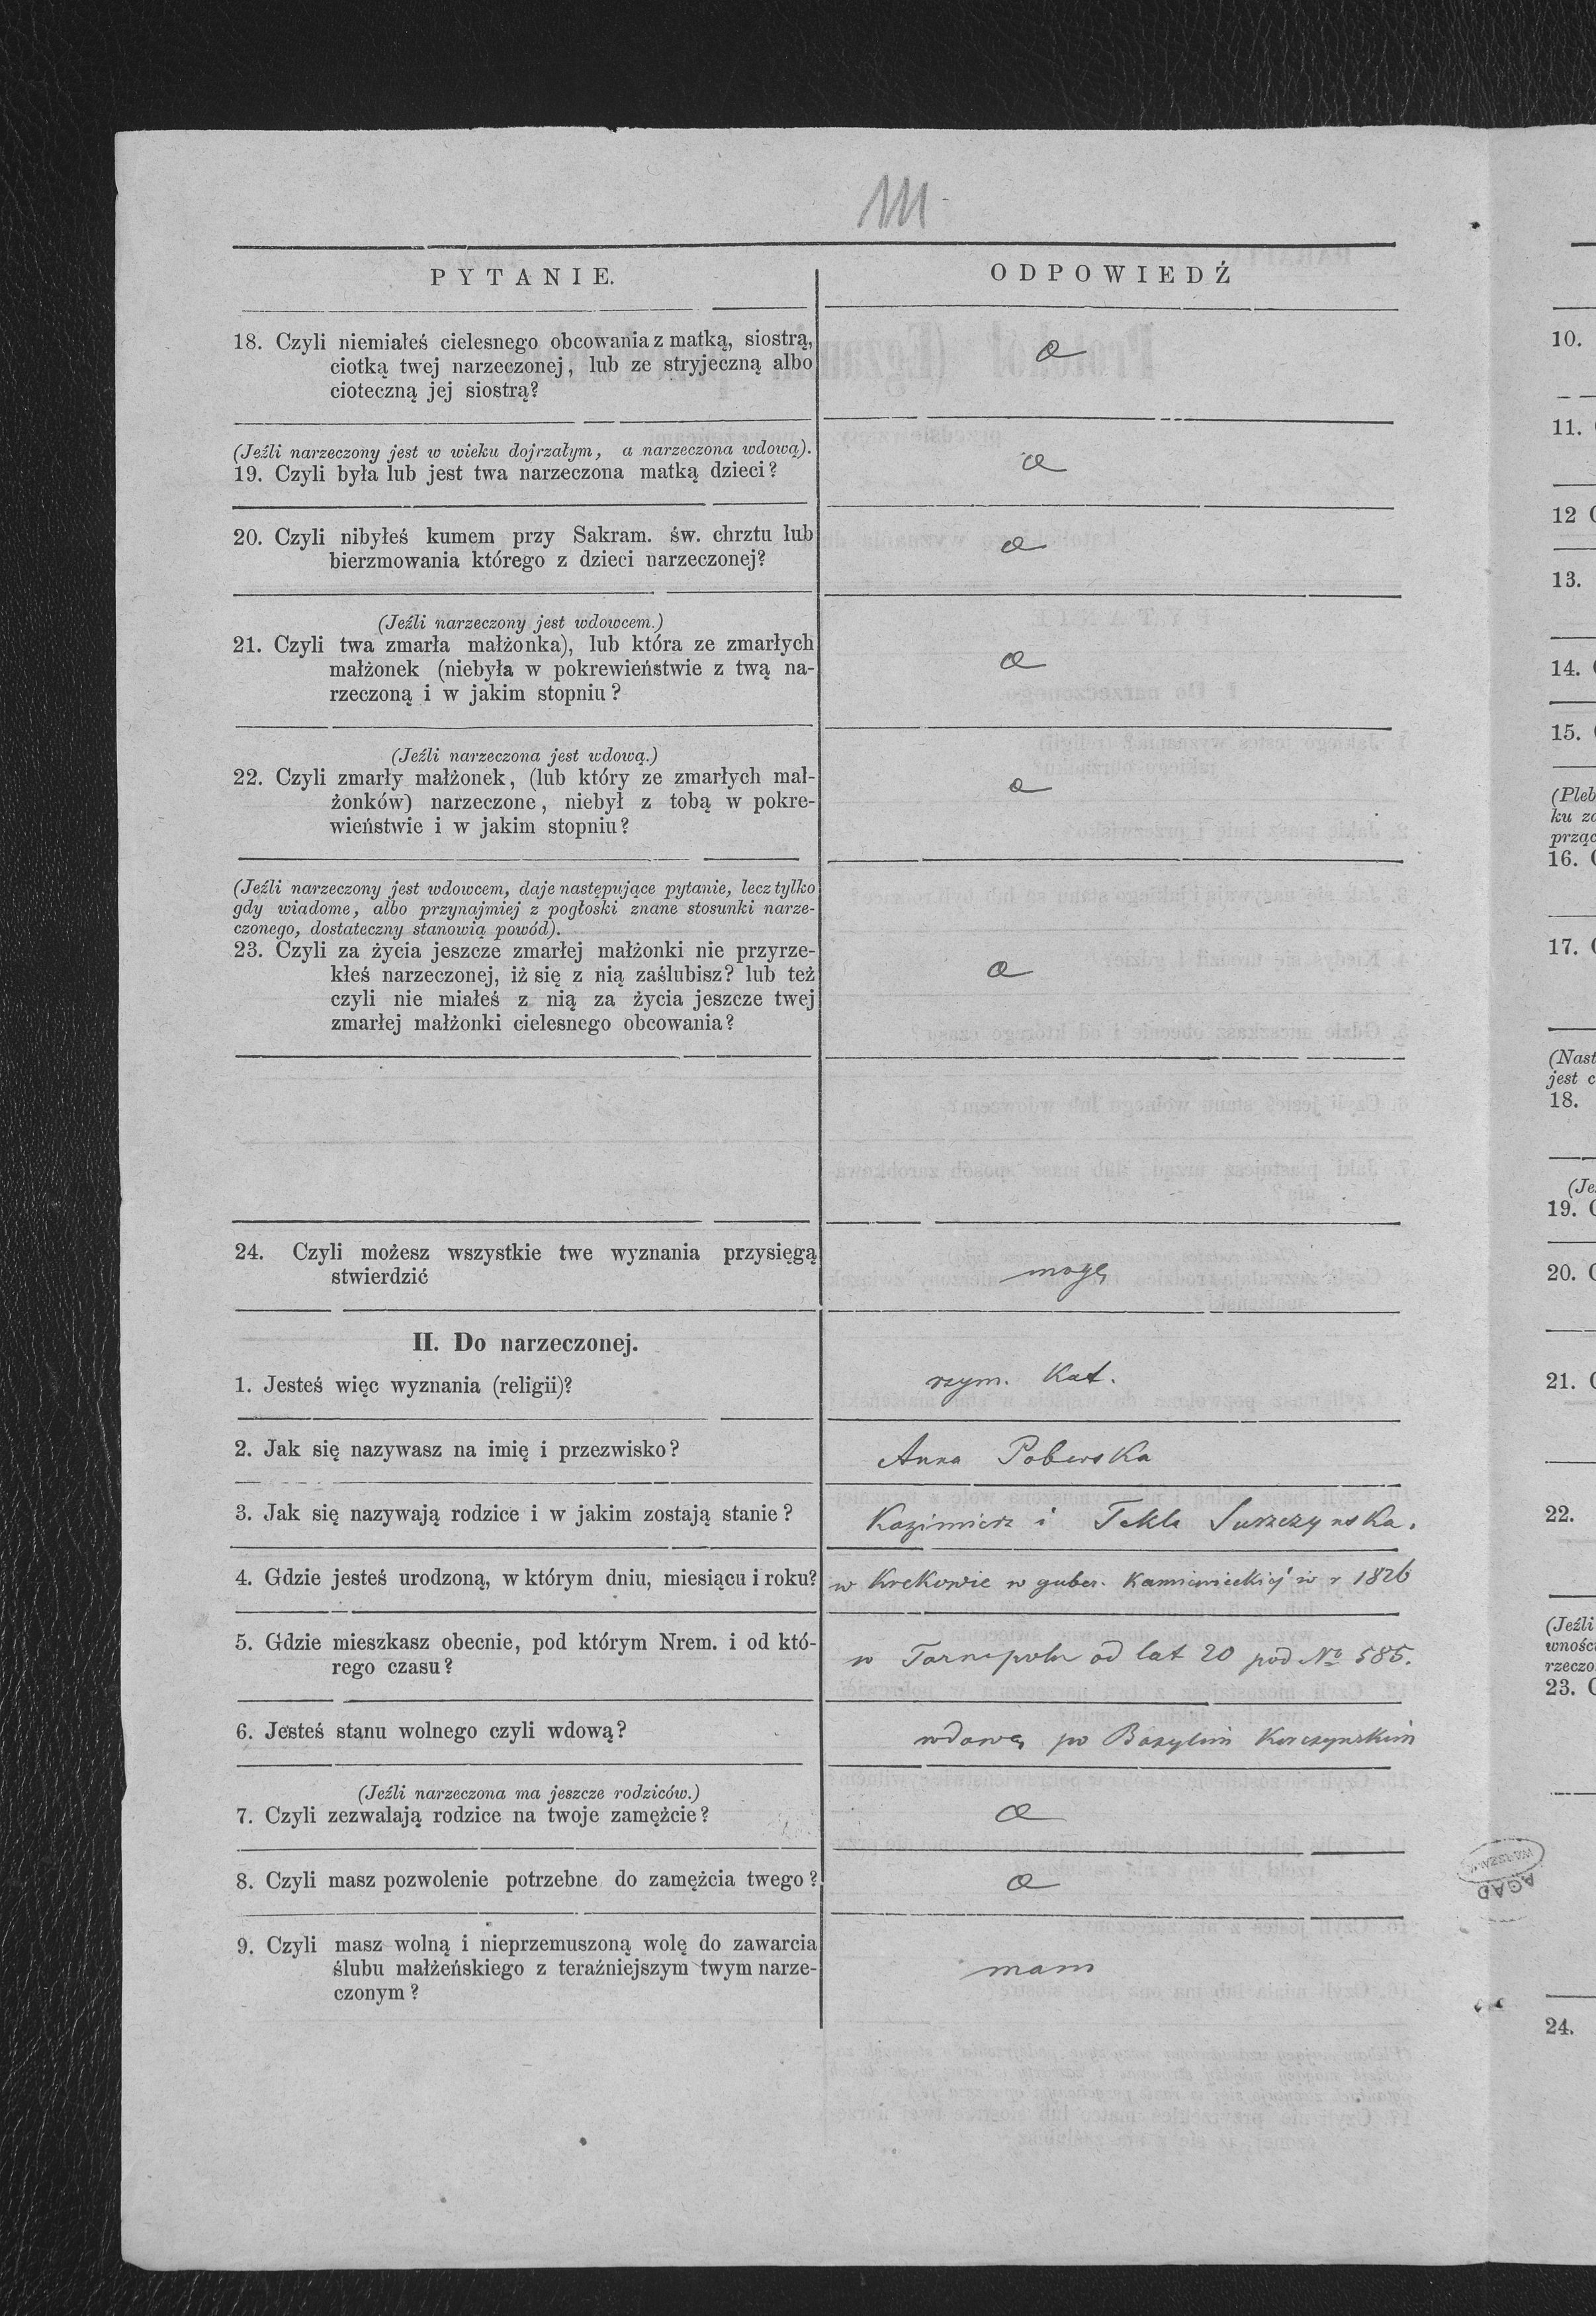 111
PYTANIE.
ODPOWIEDŹ
18. Czyli niemiałeś cielesnego obcowania z matką, siostrą,
ciotką twej narzeczonej, lub ze stryjeczną albo
cioteczną jej siostrą?
(Jeźli narzeczony jest w wieku dojrzałym, a narzeczona wdową).
19. Czyli była lub jest twa narzeczona matką dzieci?
20. Czyli nibyłeś kumem przy Sakram. św. chrztu lub
bierzmowania którego z dzieci narzeczonej?
(Jeźli narzeczony jest wdowcem.)
21. Czyli twa zmarła małżonka), lub która ze zmarłych
małżonek (niebyła w pokrewieństwie z twą na-
rzeczoną i w jakim stopniu?
(Jeźli narzeczona jest wdową.)
22. Czyli zmarły małżonek, (lub który ze zmarłych mał-
żonków) narzeczone, niebył z tobą w pokre-
wieństwie i w jakim stopniu?
(Jeźli narzeczony jest wdowcem, daje następujące pytanie, lecz tylko
gdy wiadome, albo przynajmiej z pogłoski znane stosunki narze-
czonego, dostateczny stanowią powód).
23. Czyli za życia jeszcze zmarłej małżonki nie przyrze-
kłeś narzeczonej, iż się z nią zaślubisz? lub też
czyli nie miałeś z nią za życia jeszcze twej
zmarłej małżonki cielesnego obcowania?
24. Czyli możesz wszystkie twe wyznania przysięgą
stwierdzić
mogę
II. Do narzeczonej.
1. Jesteś więc wyznania (religii)?
rzym. Kat.
2. Jak się nazywasz na imię i przezwisko?
Anna
3. Jak się nazywają rodzice i w jakim zostają stanie?
Kazimierz i Tekla
4. Gdzie jesteś urodzoną, w którym dniu, miesiącu i roku?
w guber. Kamienieckiej w r 1826
5. Gdzie mieszkasz obecnie, pod którym Nrem. i od któ-
rego czasu?
w Tarnopolu od lat 20 pod No 585.
6. Jesteś stanu wolnego czyli wdową?
wdową po Bazylim
(Jeźli narzeczona ma jeszcze rodziców.)
7. Czyli zezwalają rodzice na twoje zamężcie?
8. Czyli masz pozwolenie potrzebne do zamężcia twego?
9. Czyli masz wolną i nieprzemuszoną wolę do zawarcia
ślubu małżeńskiego z teraźniejszym twym narze-
czonym?
mam
10.
11.
12
13.
14.
15.
(Pleb
ku za
prząc
16.
17.
(Nast
jest c
18.
(Je
19.
20.
21.
22.
(Jeźli
wnośc
rzeczo
23.
24.
WARSZAWA
AGAD